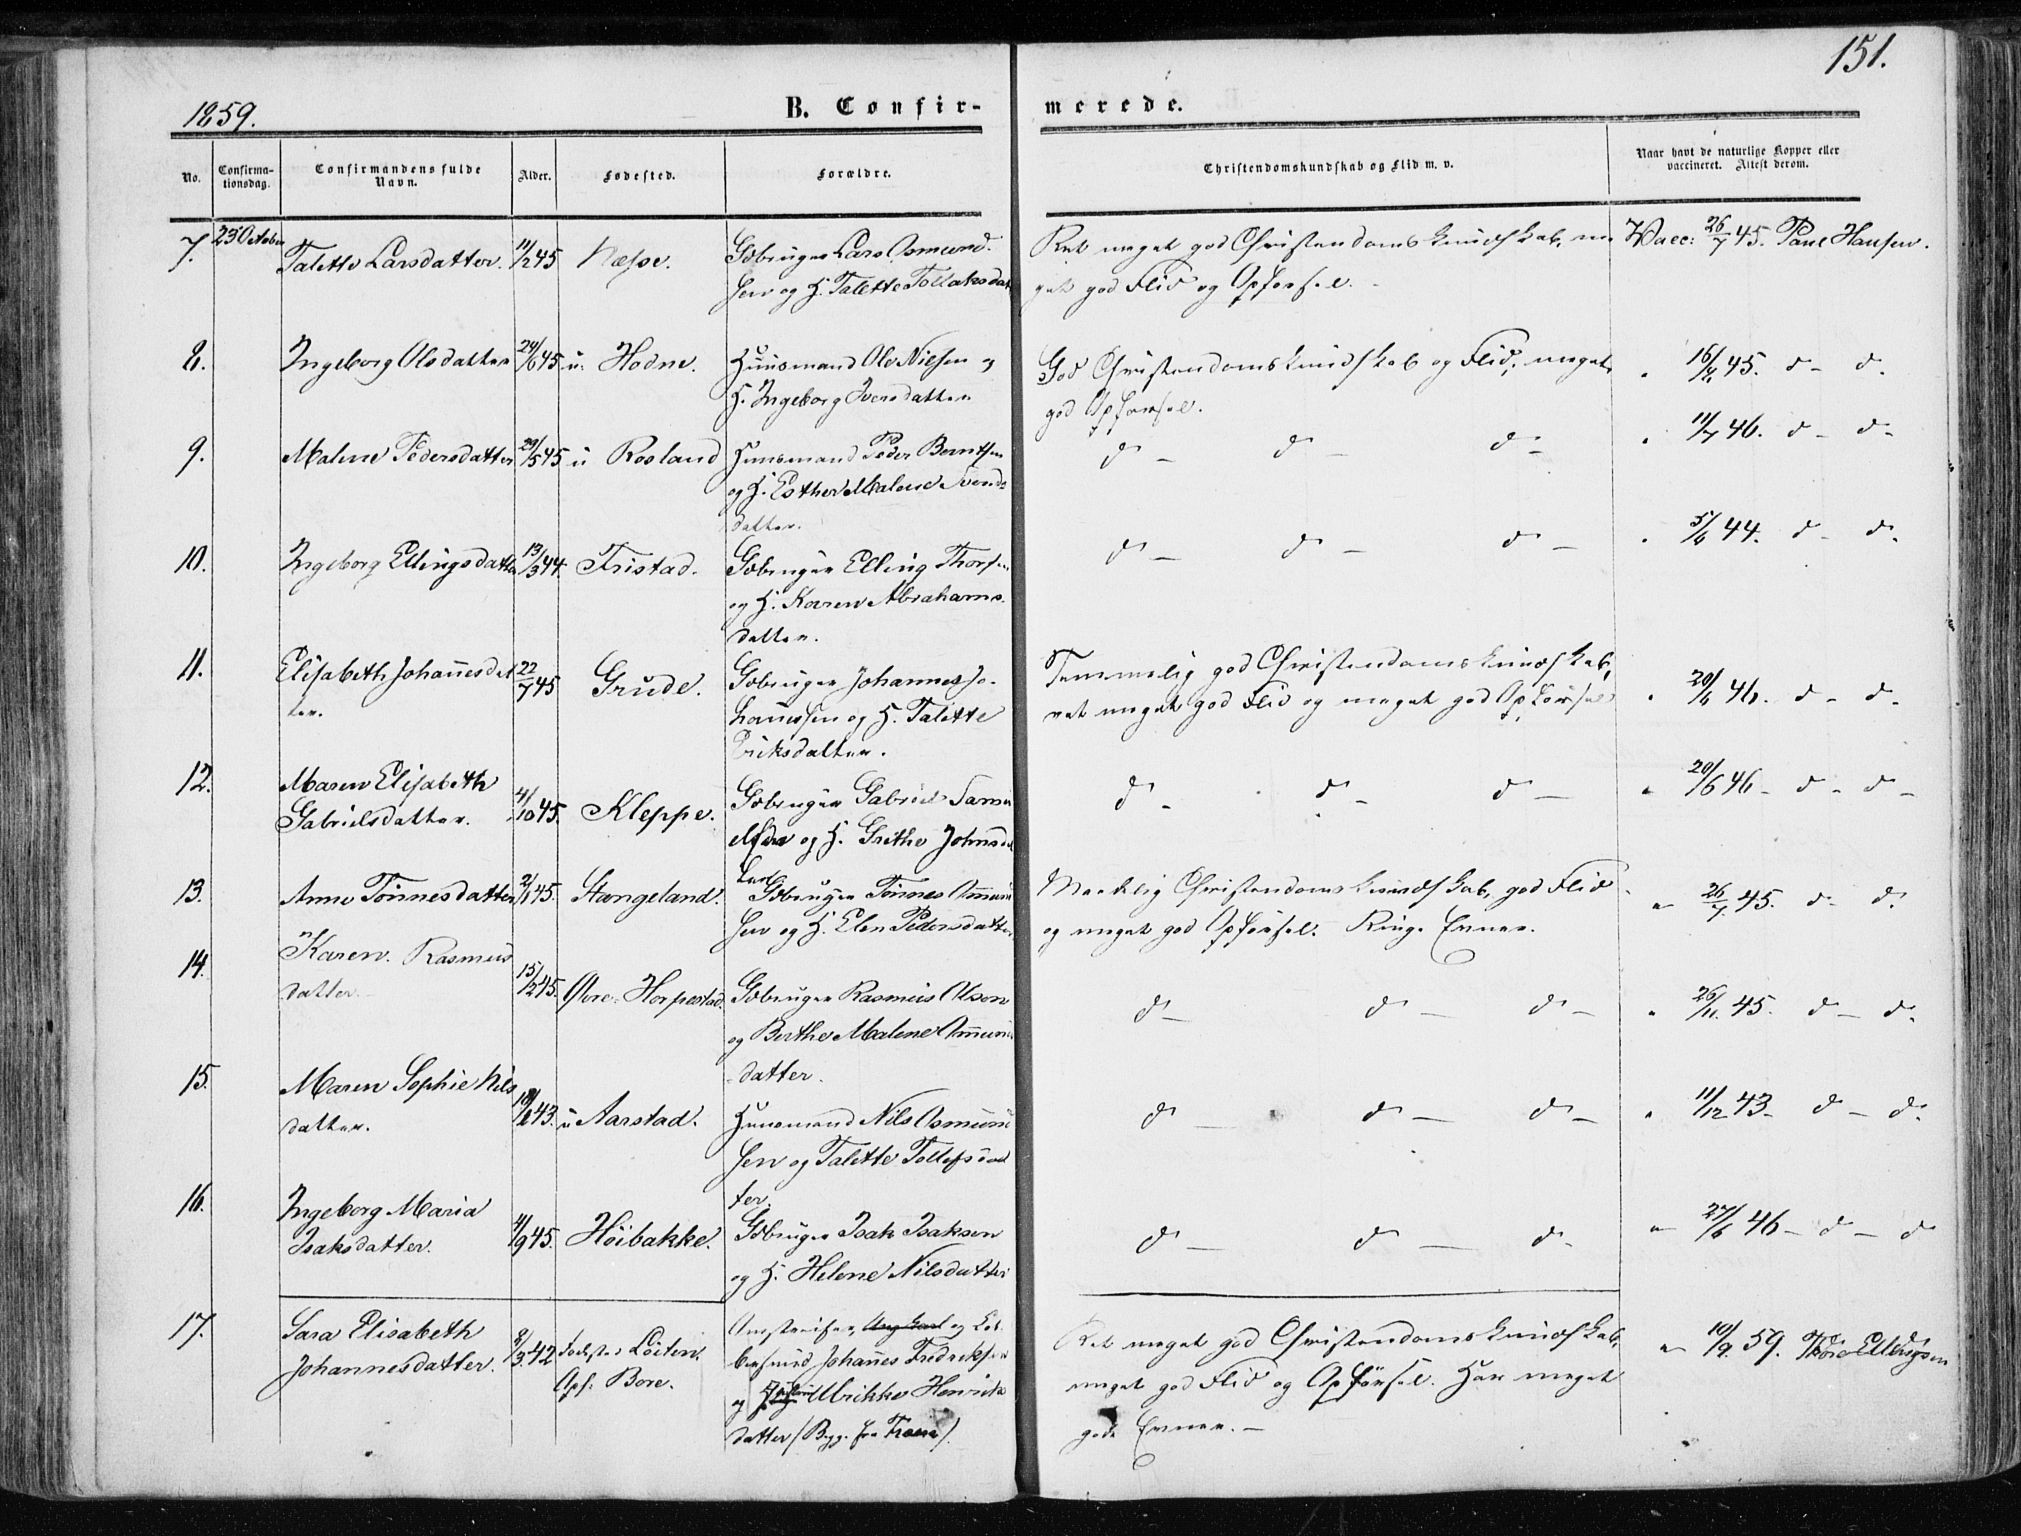 151.
1859.
B. Confir-
merede.
No.
Confirma-
tionsdag.
Confirmandens fulde
Navn.
Alder.
Fødested.
Forældre.
Christendomskundskab og Flid m. v.
Naar havt de naturlige Kopper eller
vaccineret. Attest derom.
7. 23 October Talette Larsdatter. 11/12 45 Næsse. Gbruger Lars Asmund-
sen og H. Talette Tollaksdat
Ret meget god Christendomskundskab, me
get god Flid og Opførsel.
Vacc: 26/7 45. Paul Hansen.
8. Ingeborg Olsdatter 24/6 45 u. Hodne. Huusmand Ole Nielsen og
H. Ingeborg Iversdatter
God Christendomskundskab og Flid, meget
god Opførsel.
" 16/11 45. d- d-
9. Malene Pedersdatter 29/5 45 u Rosland Huusmand Peder Berntsen
og H. Esther Malene Svends-
datter.
d- d- d-
" 11/7 46. d- d-
10. Ingeborg Ellingsdatter 13/3 44. Tristad. Gbruger Elling Thorsen
og H. Karen Abrahams-
datter.
d- d- d-
" 5/6 44. d- d-
11. Elisabeth Johannesdat
ter. 22/7 45 Grude. Gbruger Johannes Jo-
hannessen og H. Talette
Eriksdatter.
Temmelig god Christendomskundskab,
ret meget god Flid og meget god Opførsel
" 20/6 46. d- d-
12. Maren Elisabeth
Gabrielsdatter. 4/10 45. Kleppe. Gbruger Gabriel Samu
elsen og H. Grithe Johnsdat
ter
d- d- d-
" 20/6 46- d- d-
13. Anne Tönnesdatter 2/1 45. Stangeland. Gbruger Tönnes Omund
sen og H. Elen Pedersdatter
Maadelig Christendomskundskab, god Flid
og meget god Opførsel. Ringe Evner.
" 26/7 45. d- d-
14. Karen Rasmus
datter 15/2 45. Øvre-Horpestad. Gbruger Rasmus Olson
og Berthe Malene Omunds
datter.
d- d- d-
" 26/11 45. d- d-
15. Maren Sophie Nils
datter. 18/2 43. u Aarstad. Huusmand Nils Asmund
sen og Talette Tollefsdat
ter
d- d- d-
" 11/12 43- d- d-
16. Ingeborg Maria
Isaksdatter. 4/9 45. Höibakke. Gbruger Isak Isaksen
og H. Helene Nilsdatter
d- d- d-
" 27/6 46- d- d
17. Sara Elisabeth
Johannesdatter. 2/3 42 Födested Löiten.
Opf: Bore. og Kob-
bersmed Johannes Fredriksen
og Ulrikke Henriks
datter (Byg. fra )
Ret meget god Christendomskundskab,
meget god Flid og Opførsel. Har meget
gode Evner.-
" 10/9 59. Thore Ellingsen